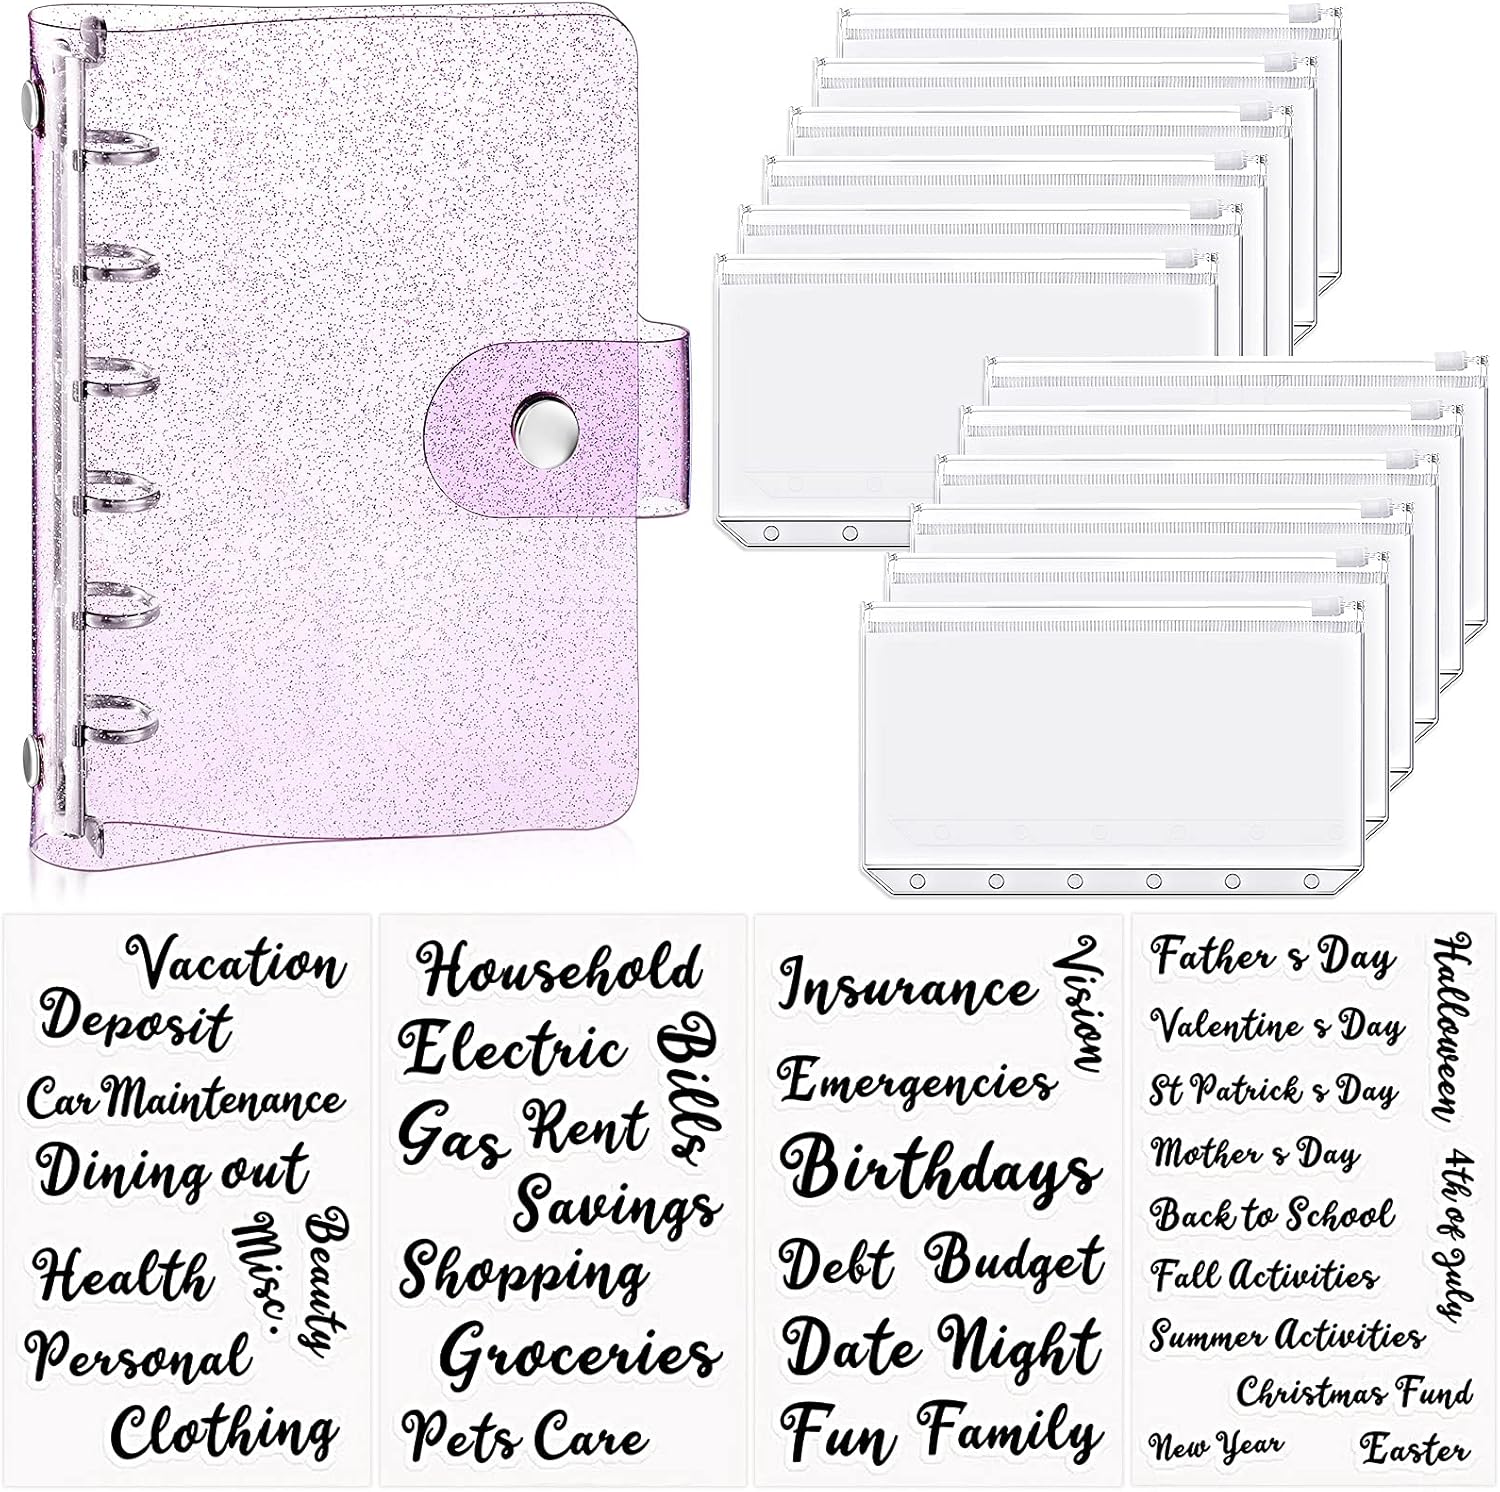 Vacation
Deposit
Car Maintenance
Dining out
Health
Misc.
Beauty
Personal
Clothing
Household
Electric
Bills
Gas
Rent
Savings
Shopping
Groceries
Pets Care
Insurance
Vision
Emergencies
Birthdays
Debt
Budget
Date Night
Fun
Family
Father s Day
Valentine s Day
St Patrick s Day
Mother s Day
Back to School
Fall Activities
Summer Activities
Christmas Fund
New Year
Easter
Halloween
4th of July